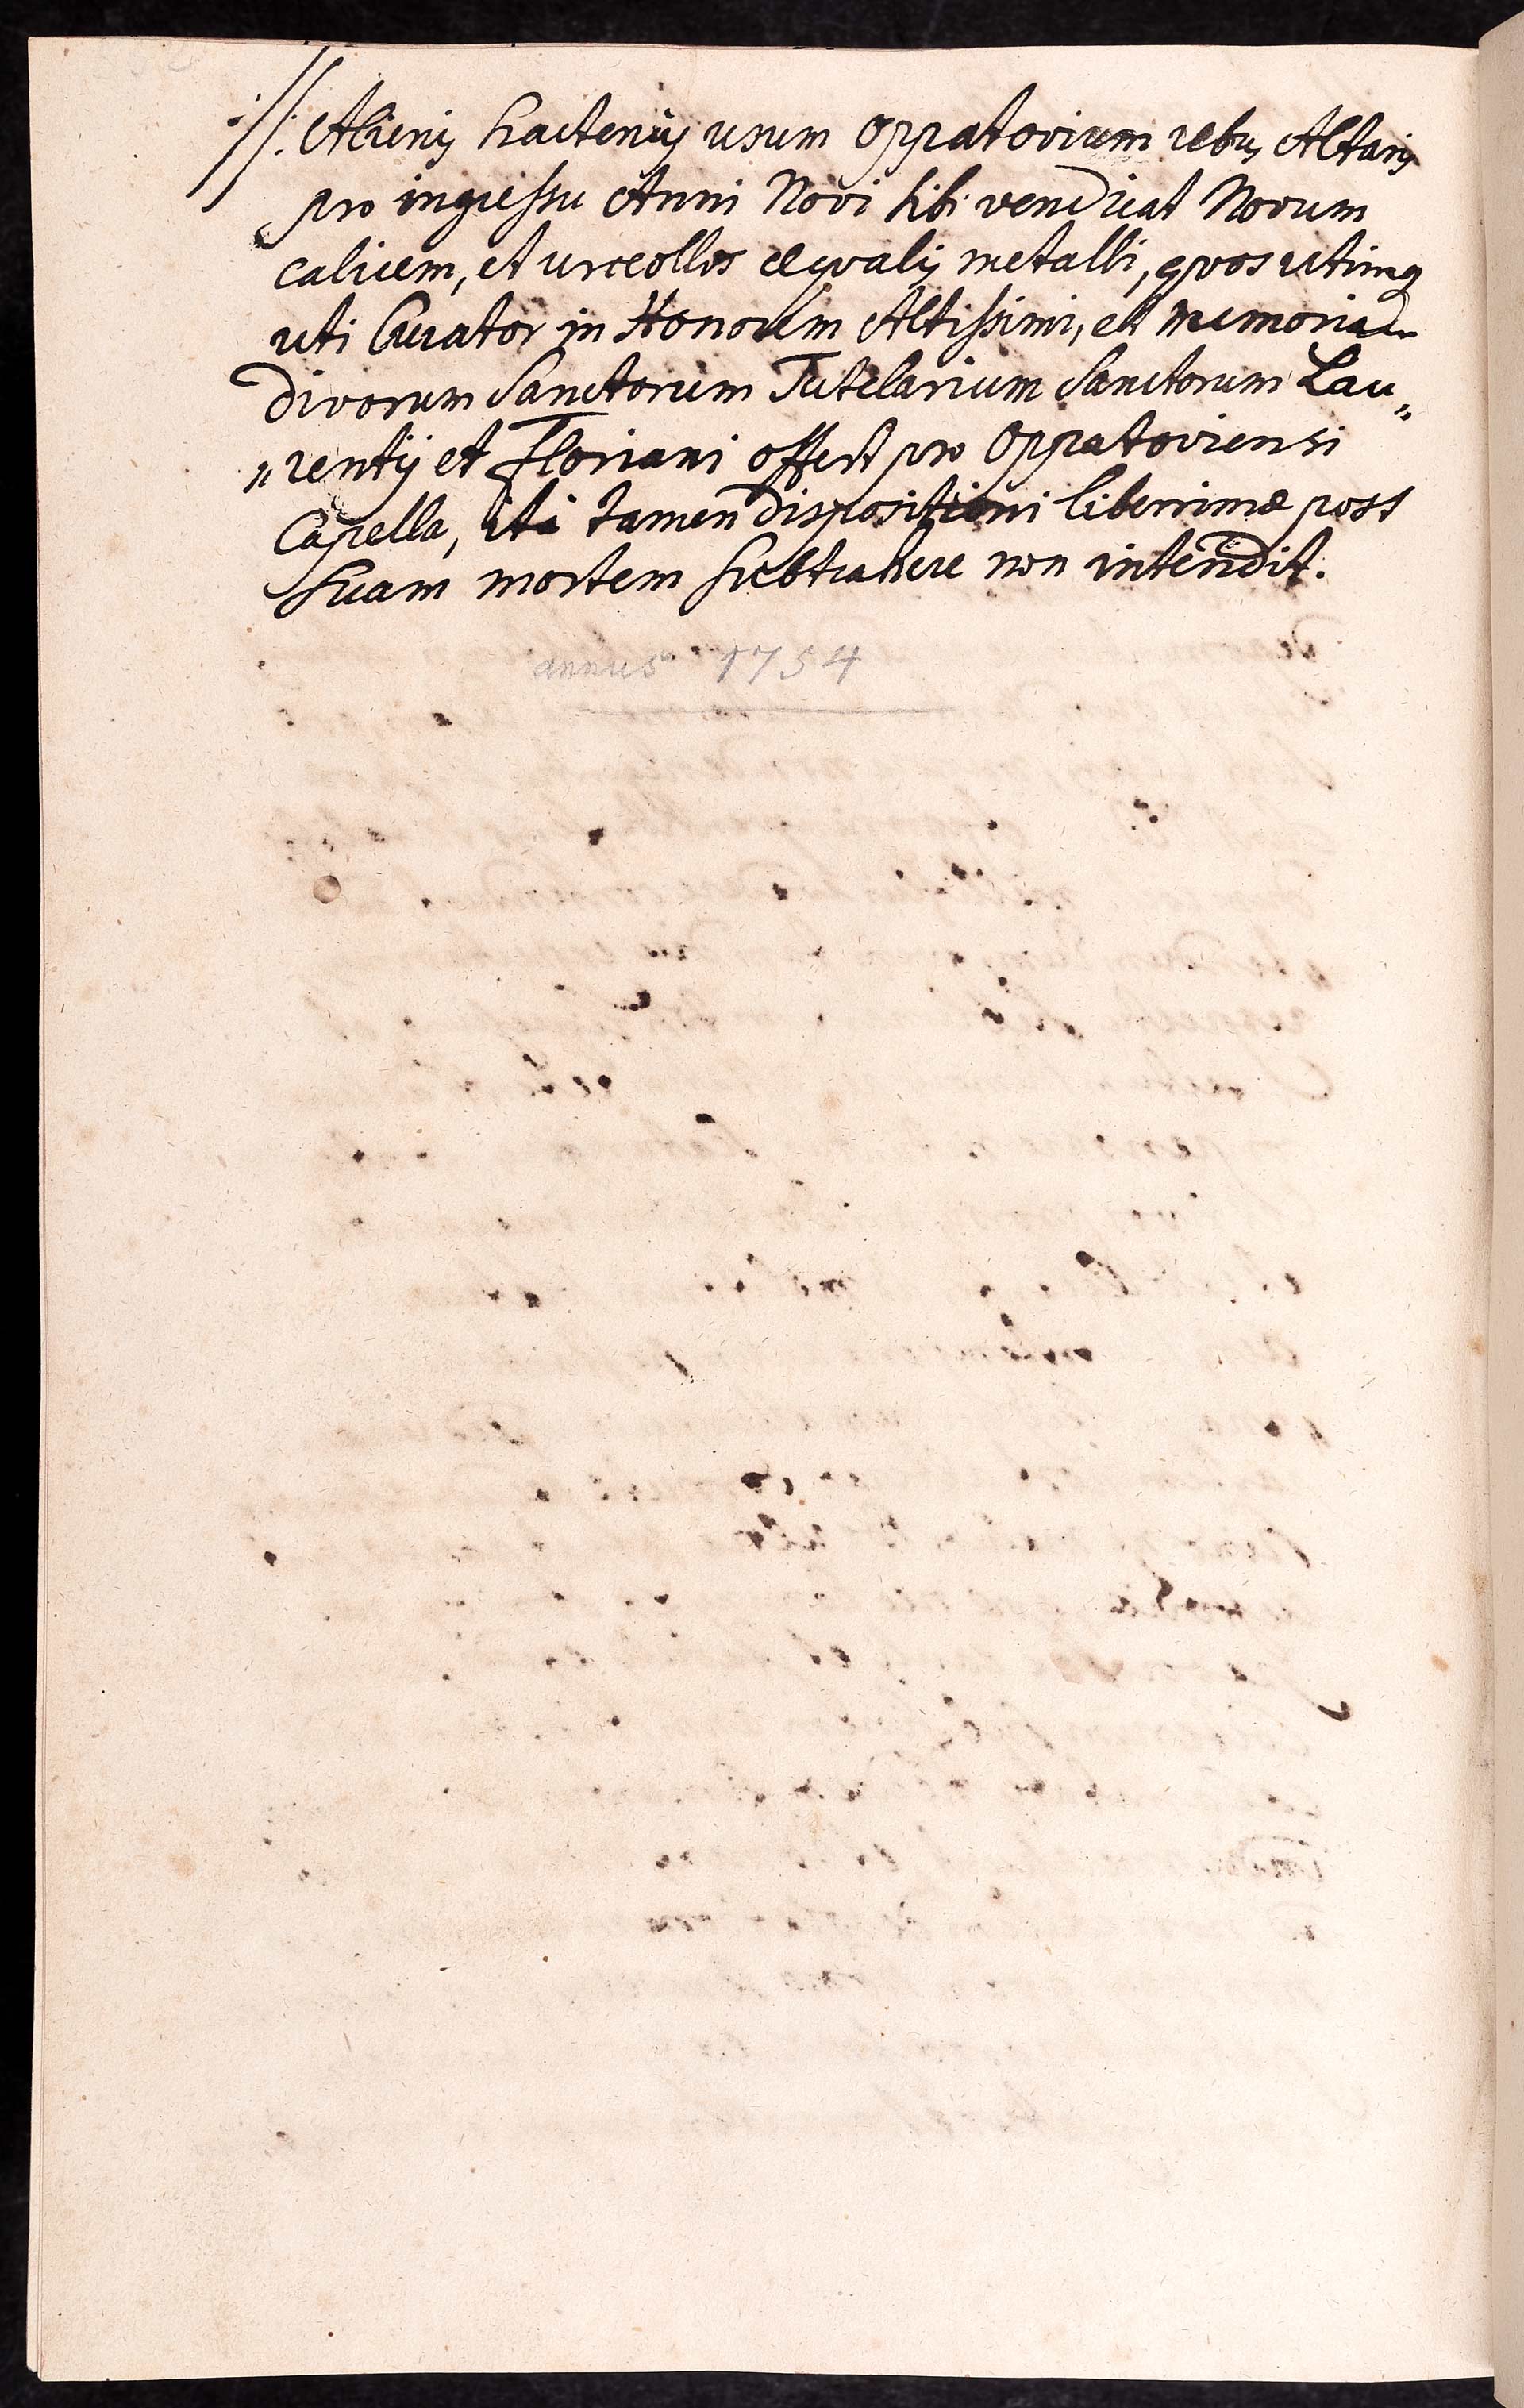 ·//: Alienis hactenus usum Oppatovium rebus Altaris
pro ingressu Anni Novi sibi vendicat Novum
calicem, et urceollos aeqvalis metalli, qvos utrinq
uti Curator in Honorem Altissimi, et memoriam
divorum Sanctorum Tutelarium Sanctorum Lau„
„rentij et Floriani offert pro Oppatoviensi
Capella, ità tamen dispositioni liberrimae post
Suam mortem subtrahere non intendit.
annus 1754